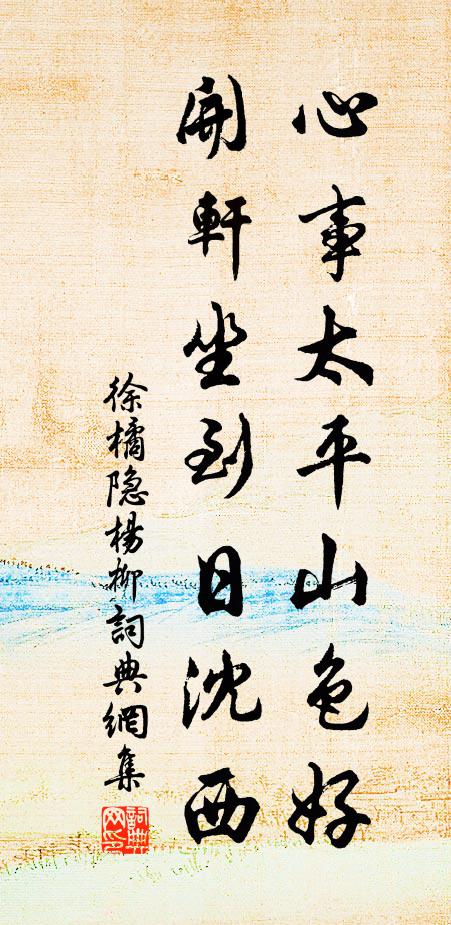 心事太平山色好
開軒坐到日沈西
徐橘隐楊柳詞典網集
詞典网印